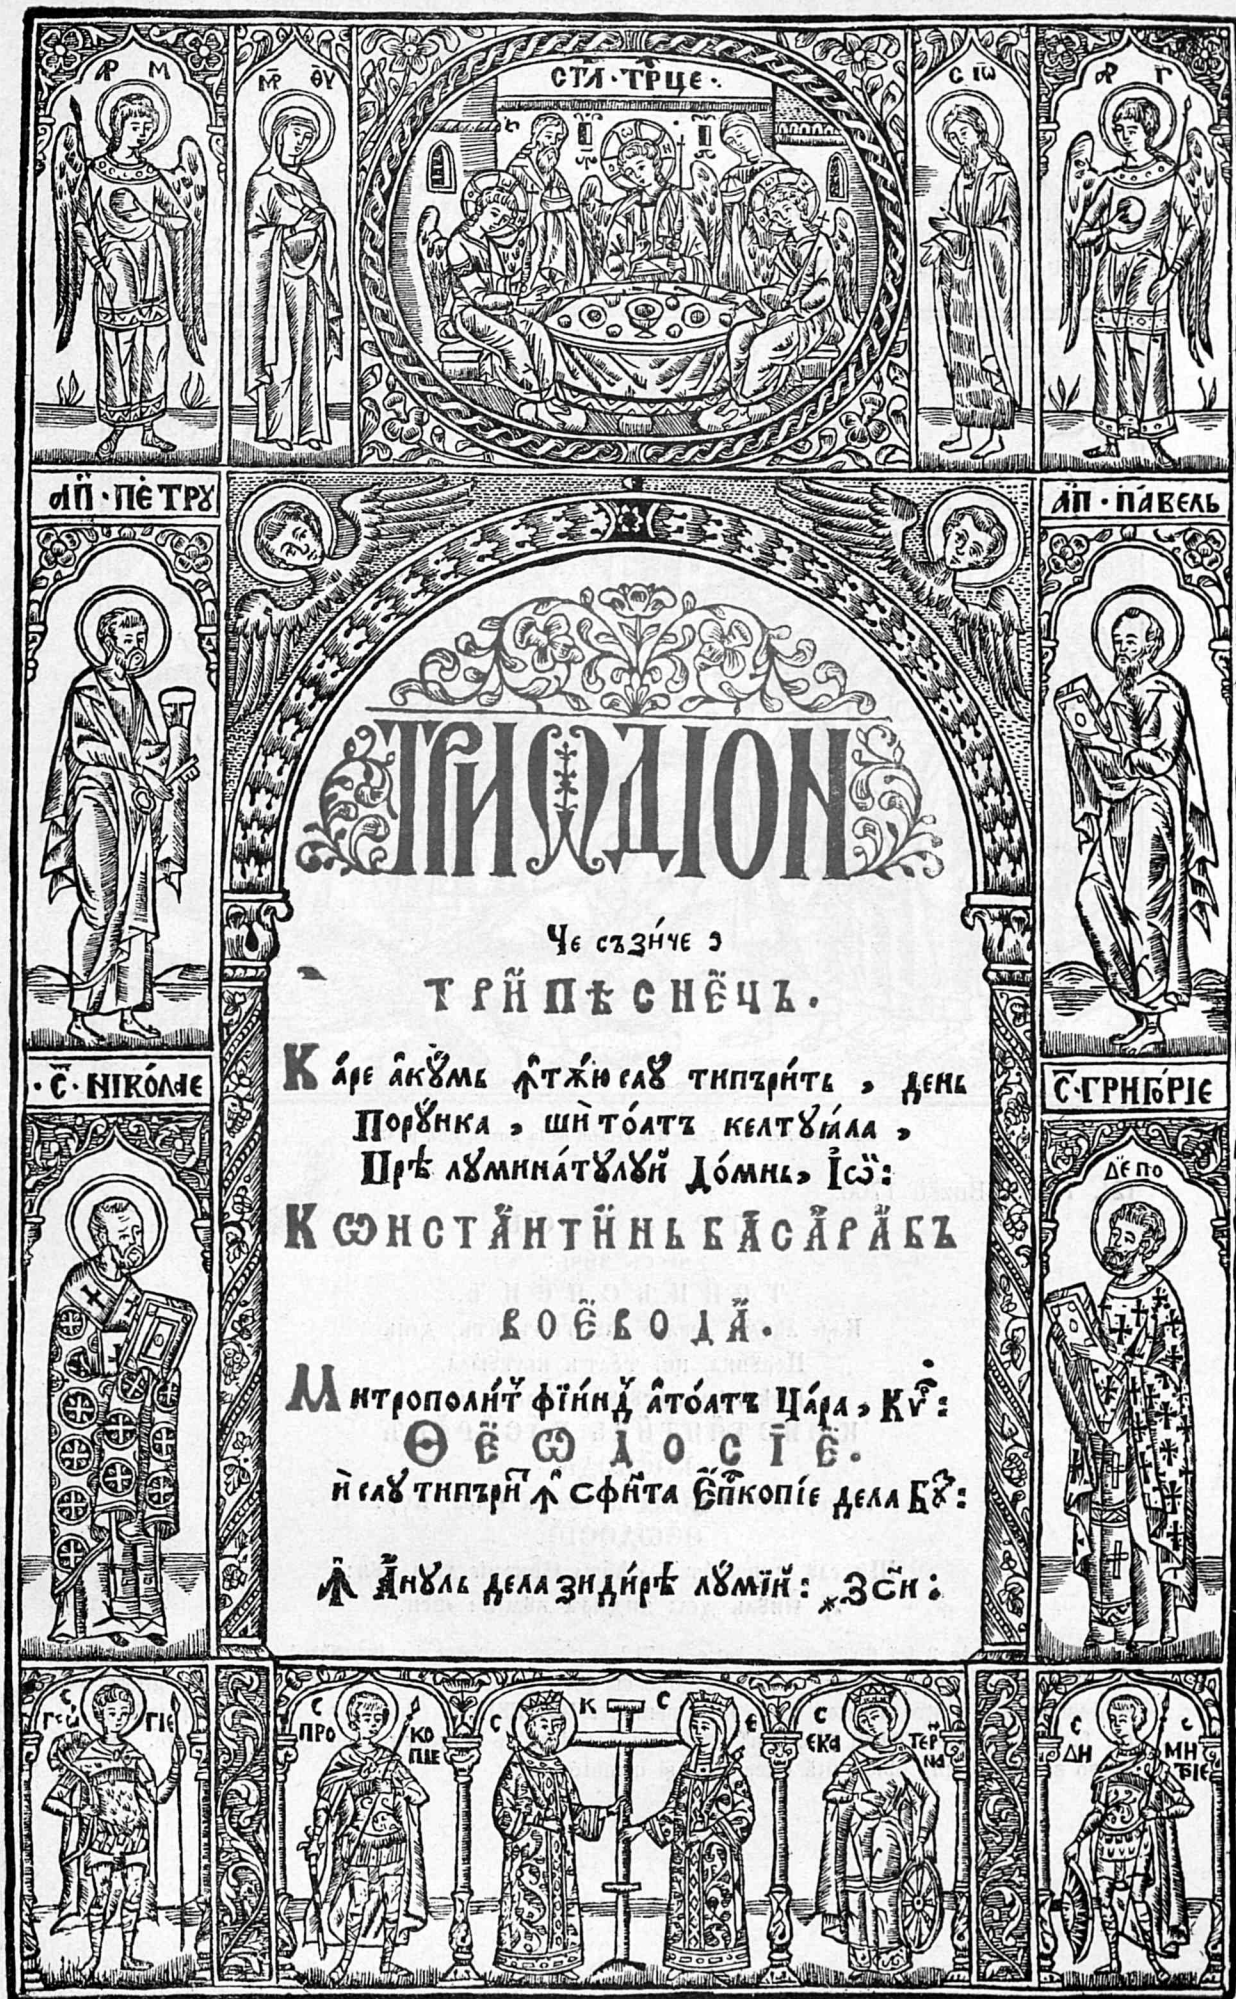 АР М
МР ѲУ
СТА · ТРЦЕ ·
С ІѠ
АР Г
АП · ПЕТРУ
АП · ПАВЕЛЬ
ТРИѠДІОН
Че съзи́че
ТРИПѢСНЕЦЬ.
Ка́ре аку́мь ꙟтѫ́ю сау типъри́ть, день
Пору́нка, ши то́атъ келтуꙗ́ла,
Прѣ лумина́тулуй До́мнь, Іѡ:
КѠНСТАНТИНЬ БАСАРАБЪ
ВОЕВОДА.
Митрополи́т фїи́нд ато́атъ Ца́ра, Кѵр:
ѲЕѠДОСІЕ.
Ѝ сау типъри ꙟ Сфи́та Епкопіе дела Бꙋз:
Ꙟ А́нуль дела зиди́рѣ лу́мїй: ҂ЗСИ:
· С · НІКО́ЛАЕ
С · ГРИГО́РІЕ
ДЕ ПО
С ГЕѠ ГІЕ
С ПРО КО ПІЕ
С К С Е
С ЕКА ТЕРИ НА
С ДИ МИ ТРІЕ